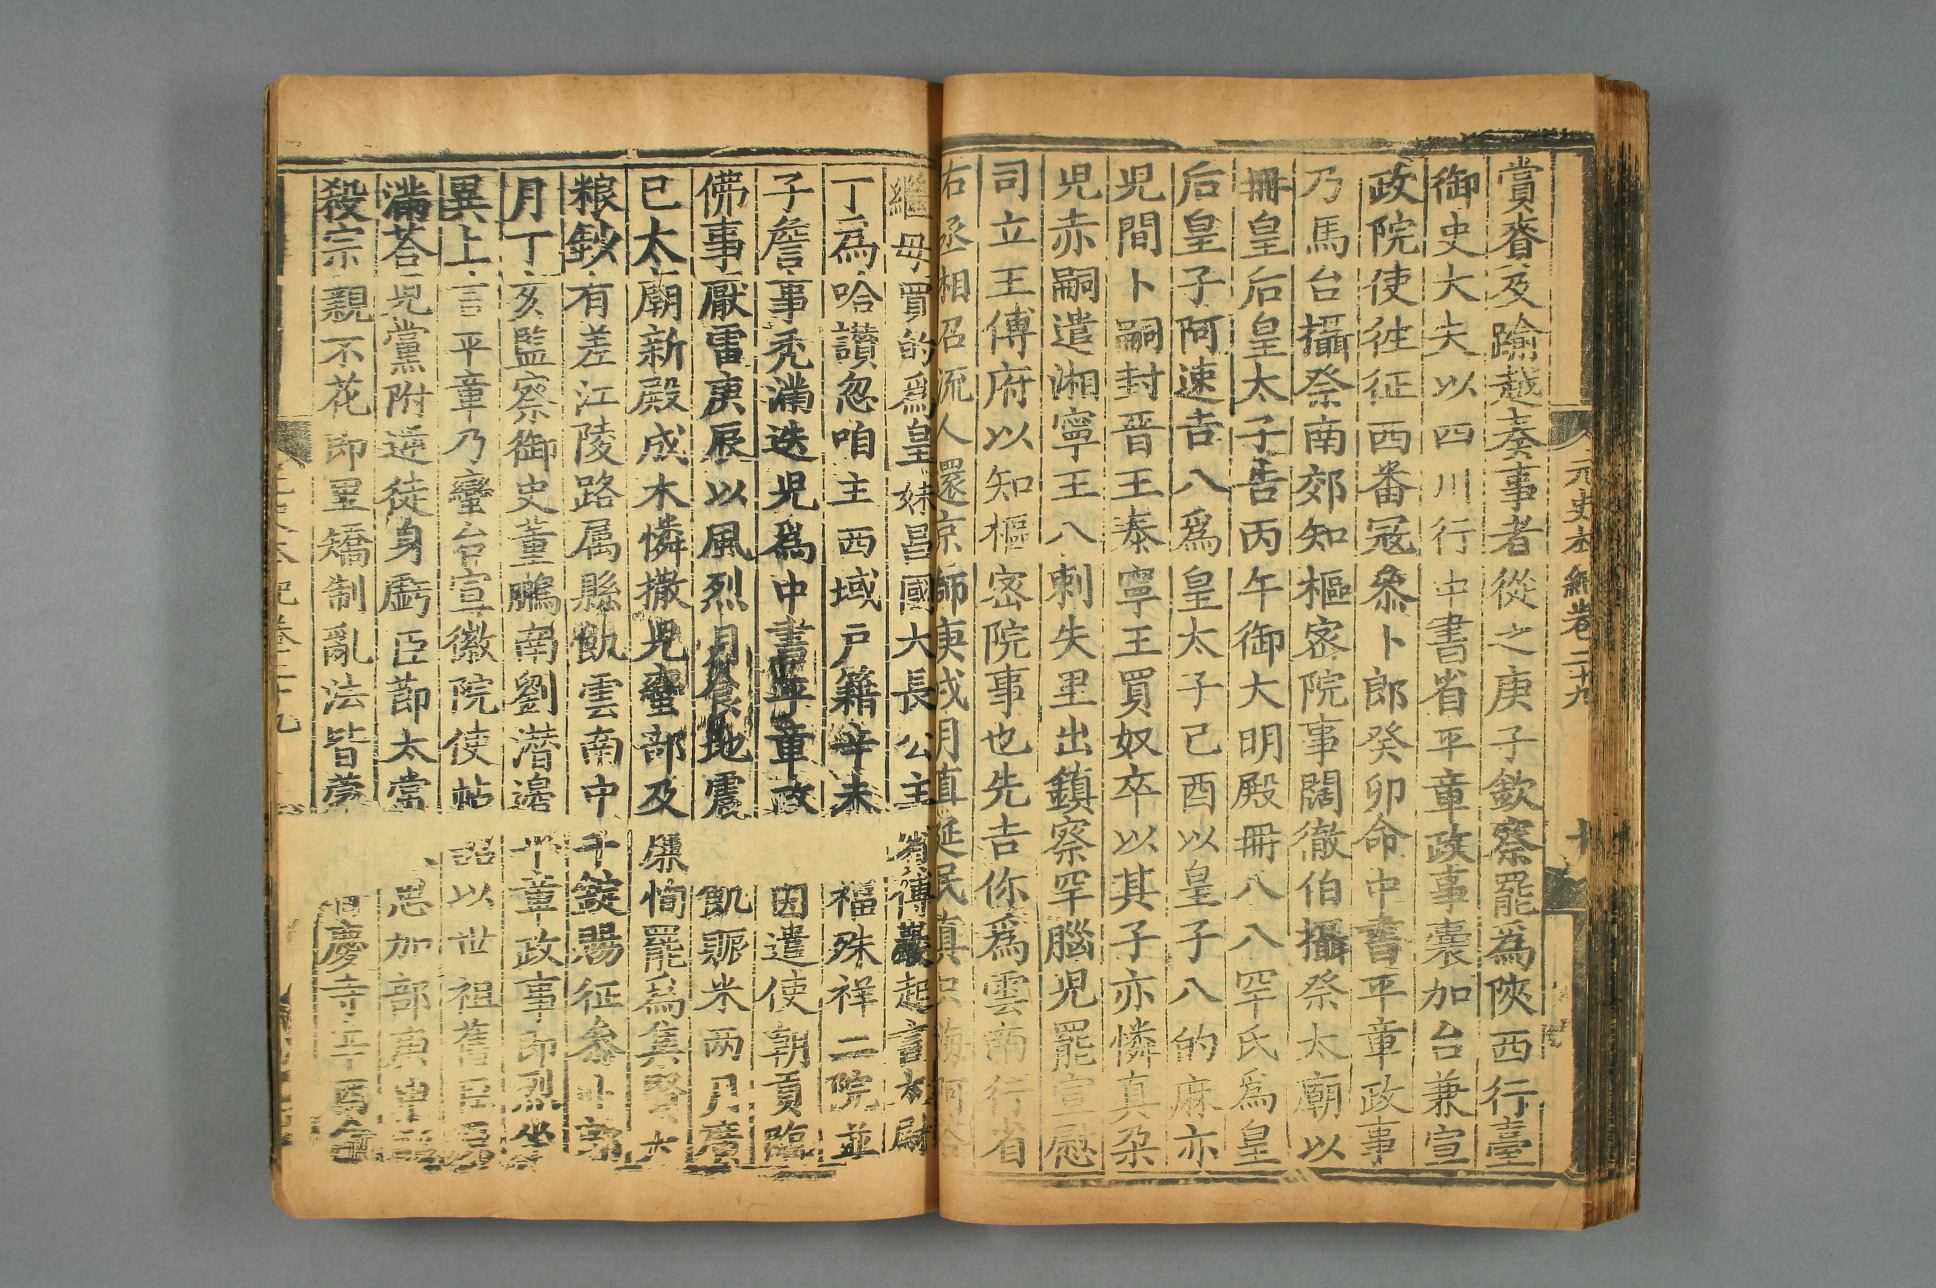 元史本紀卷二十九 十
賞賚及踰越奏事者從之庚子欽察罷爲陝西行臺
御史大夫以四川行中書省平章政事囊加台兼宣
政院使徃征西番寇參卜郎癸卯命中書平章政事
乃馬台攝祭南郊知樞密院事闊徹伯攝祭太廟以
冊皇后皇太子告丙午御大明殿冊八八罕氏爲皇
后皇子阿速吉八爲皇太子己酉以皇子八的麻亦
児間卜嗣封晋王泰寧王買奴卒以其子亦憐真朶
児赤嗣遣湘寧王八剌失里出鎮察罕腦児罷宣慰
司立王傅府以知樞密院事也先吉你爲雲南行省
右丞相召流人還京師庚戌月直延民真只海阿哈
繼母買的爲皇妹昌國大長公主 傅嚴起言太尉
丁爲哈讃忽咱主西域戶籍辛未 福殊祥二院並
子詹事禿滿迭児爲中書平章政 因遣使朝貢臨
佛事厭雷庚辰以風烈月食地震 飢賑米两月廣
巳太廟新殿成木憐撒児蠻部及 康恂罷爲集賢大
粮鈔有差江陵路属縣飢雲南中 千錠賜征參卜郎
月丁亥監察御史董鵬南劉潜邉 平章政事即烈坐
異上言平章乃蠻台宣徽院使帖 詔以世祖舊臣
滿荅児黨附逆徒身虧臣節太常 忠加部庚
殺宗親不花即里矯制亂法皆蒙 慶寺辛酉命